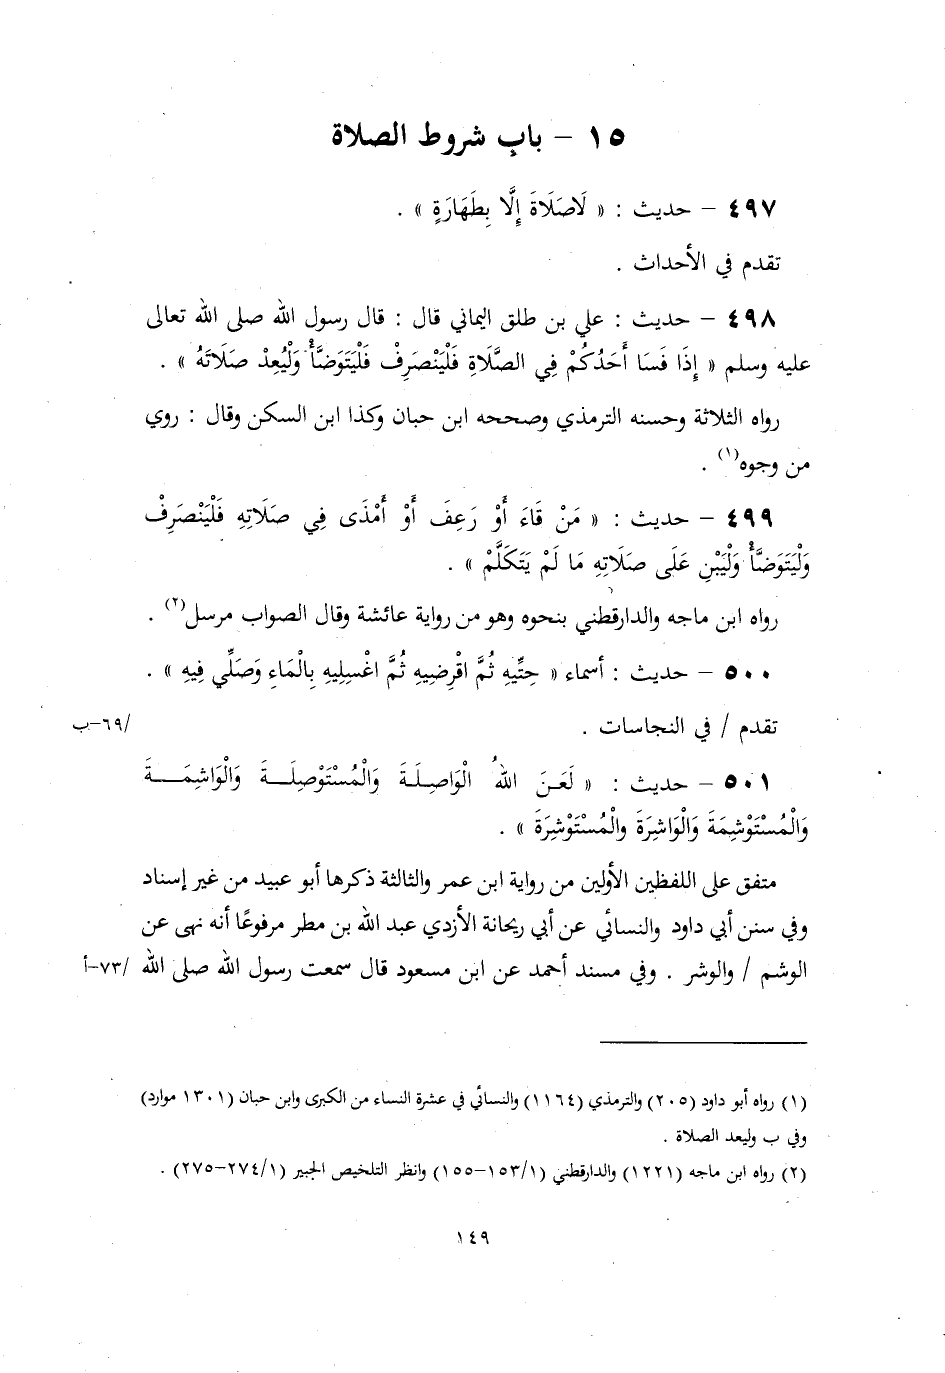 ١٥ – باب شروط الصلاة
٤٩٧ – حديث : « لَاصَلَاةَ إِلَّا بِطَهَارَةٍ » .
تقدم في الأحداث .
٤٩٨ – حديث : علي بن طلق اليماني قال : قال رسول الله صلى الله تعالى
عليه وسلم « إِذَا فَسَا أَحَدُكُمْ فِي الصَّلَاةِ فَلْيَنْصَرِفْ فَلْيَتَوَضَّأْ وَلْيُعِدْ صَلَاتَهُ » .
رواه الثلاثة وحسنه الترمذي وصححه ابن حبان وكذا ابن السكن وقال : روي
من وجوه(١) .
٤٩٩ – حديث : « مَنْ قَاءَ أَوْ رَعِفَ أَوْ أَمْذَى فِي صَلَاتِهِ فَلْيَنْصَرِفْ
وَلْيَتَوَضَّأْ وَلْيَبْنِ عَلَى صَلَاتِهِ مَا لَمْ يَتَكَلَّمْ » .
رواه ابن ماجه والدارقطني بنحوه وهو من رواية عائشة وقال الصواب مرسل(٢) .
٥٠٠ – حديث : أسماء « حِتِّيهِ ثُمَّ اقْرِضِيهِ ثُمَّ اغْسِلِيهِ بِالْمَاءِ وَصَلِّي فِيهِ » .
تقدم / في النجاسات . /٦٩–ب
٥٠١ – حديث : « لَعَنَ اللهُ الْوَاصِلَةَ وَالْمُسْتَوْصِلَةَ وَالْوَاشِمَةَ
وَالْمُسْتَوْشِمَةَ وَالْوَاشِرَةَ والْمُسْتَوْشِرَةَ » .
متفق على اللفظين الأولين من رواية ابن عمر والثالثة ذكرها أبو عبيد من غير إسناد
وفي سنن أبي داود والنسائي عن أبي ريحانة الأزدي عبد الله بن مطر مرفوعًا أنه نهى عن
الوشم / والوشر . وفي مسند أحمد عن ابن مسعود قال سمعت رسول الله صلى الله /٧٣–أ
(١) رواه أبو داود (٢٠٥) والترمذي (١١٦٤) والنسائي في عشرة النساء من الكبرى وابن حبان (١٣٠١ موارد)
وفي ب وليعد الصلاة .
(٢) رواه ابن ماجه (١٢٢١) والدارقطني (١/١٥٣–١٥٥) وانظر التلخيص الحبير (١/٢٧٤–٢٧٥) .
١٤٩